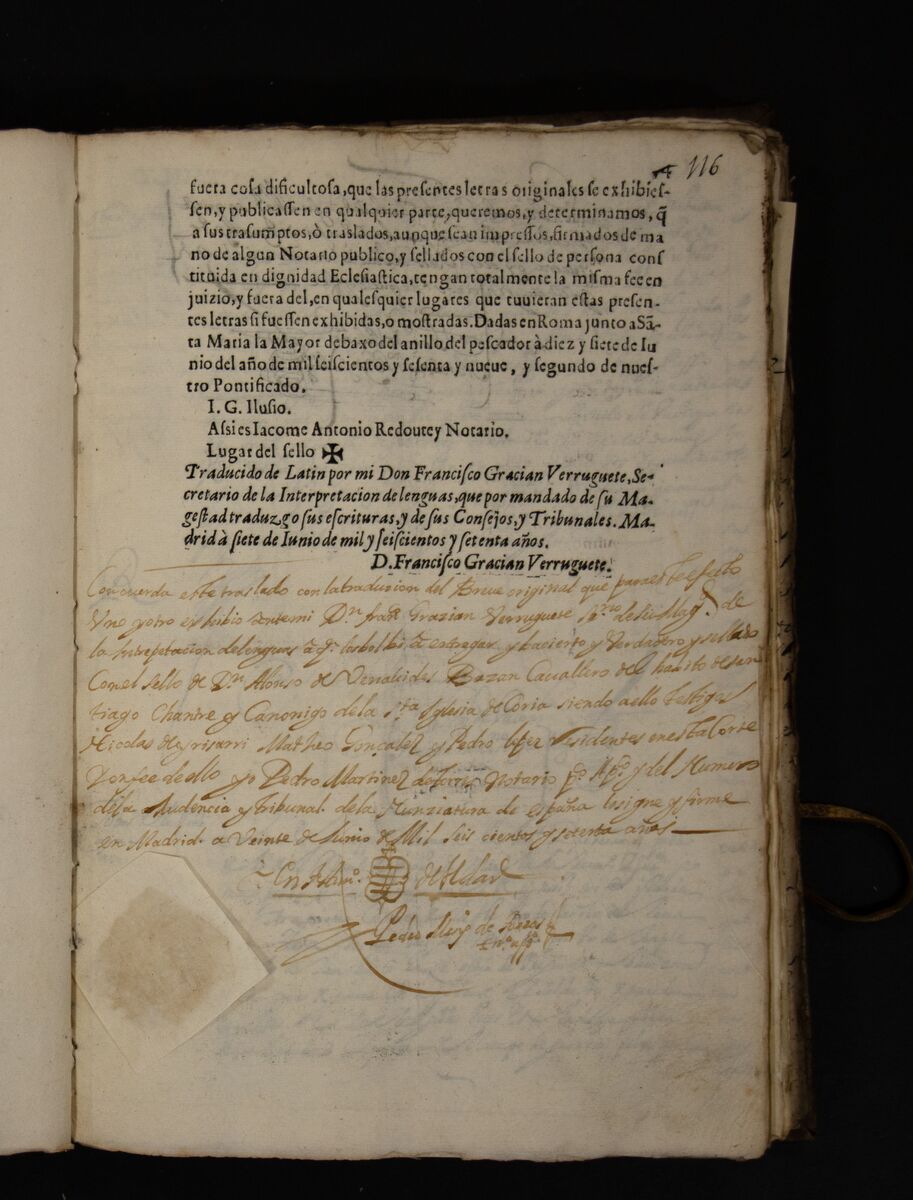 116
fuera cosa dificultosa, que las presentes letras originales se exhibies-
sen, y publicassen en qualquier parte, queremos, y determinamos, q̃
a sus trasumptos, ò traslados, aunque sean impressos, firmados de ma
no de algun Notario publico, y sellados con el sello de persona cons
tituida en dignidad Eclesiastica, tengan totalmente la misma fee en
juizio, y fuera del, en qualesquier lugares que tuuieran estas presen-
tes letras si fuessen exhibidas, o mostradas. Dadas en Roma junto a Sã-
ta Maria la Mayor debaxo del anillo del pescador à diez y siete de Iu
nio del año de mil seiscientos y sesenta y nueue, y segundo de nues-
tro Pontificado.
I. G. Ilusio.
Assi es Iacome Antonio Redoutey Notario.
Lugar del sello ✠
Traducido de Latin por mi Don Francisco Gracian Verruguete, Se-
cretario de la Interpretacion de lenguas, que por mandado de su Ma-
gestad traduzgo sus escrituras, y de sus Consejos, y Tribunales. Ma-
drid à siete de Iunio de mil y seiscientos y setenta años.
D. Francisco Gracian Verruguete.
Concuerda este traslado con la traducion del Breue original que para este efecto
Vno y otro exhibio ante mi Dn. franco Grazian Verruguete Srio de su Magd. de
la Intrepetacion de lenguas a q. los bolbi a entregar y ba cierto y Verdadero y sellado
Con el sello de Dn Alonso de Venabides Bazan Cauallero del habito de san
tiago Chantre y Canonigo de la Sta Yglesia de Coria siendo a ello testigos
Nicolas de yrisarri Matheo Gonçalez y Pedro lopez Residentes en esta Corte
Doy fee de ello yo Pedro Martinez de torres Notario pco. Appo. y del Numero
de la Audencia y tribunal de la Nunziatura de españa lo signe y firme
en Madrid a Veinte de Junio de Mil seis cientos y setenta años
En testimo. de Verdad
Pedro Mrnz de torres